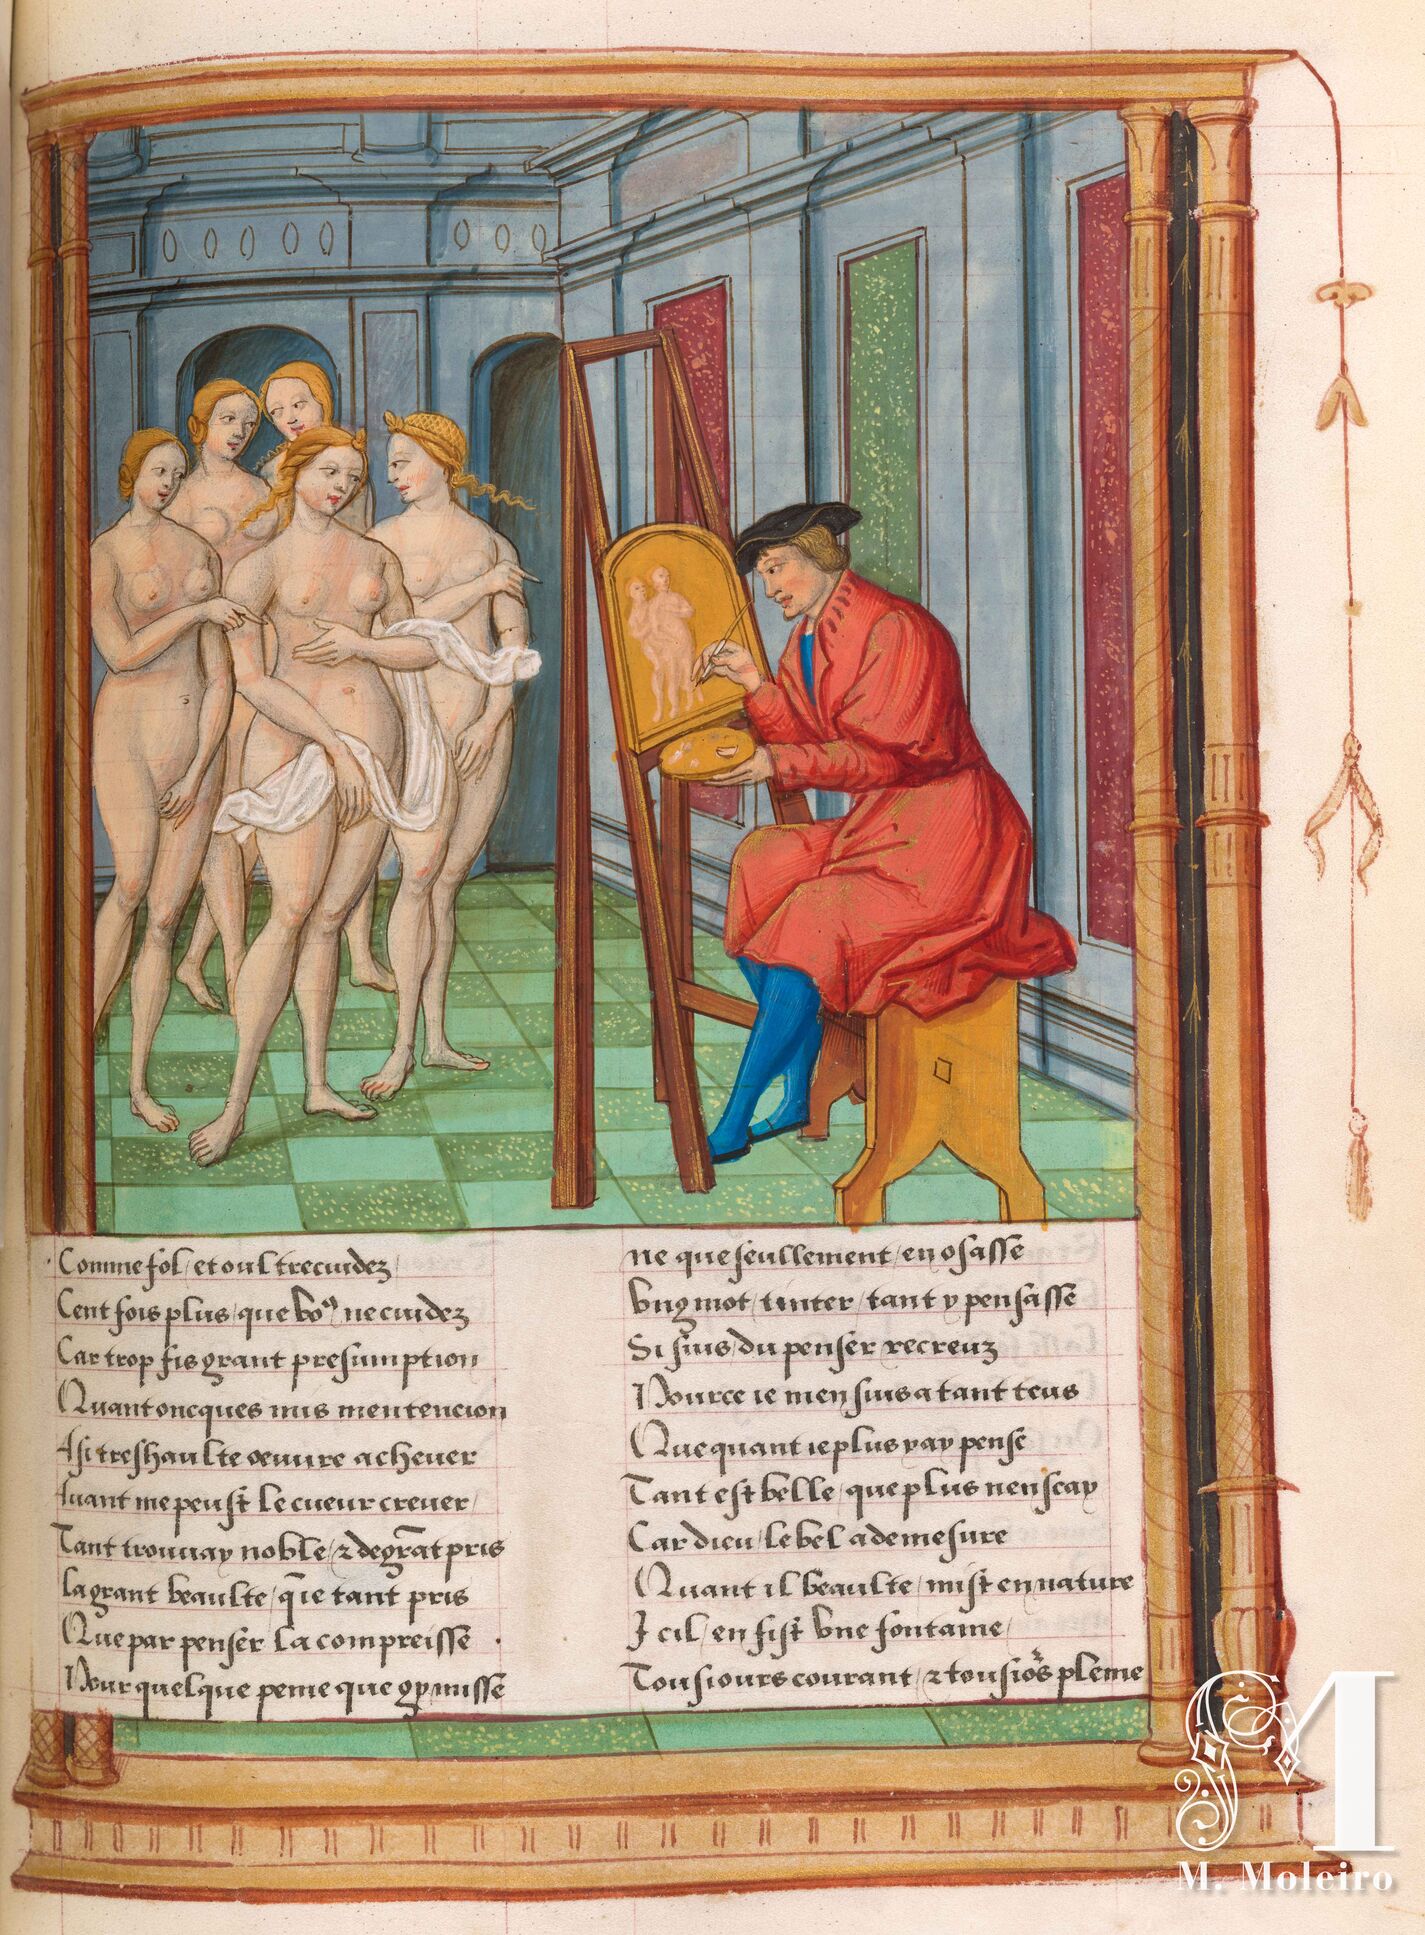 Comme fol / et oultrecuidez /
Cent fois plus / que vo⁹ ne cuidez
Car trop fis grant presumption
Quant oncques mis mentencion
A si treshaulte oeuure acheuer
Auant me peust le cueur creuer /
Tant trouuay noble / ⁊ de grāt pris
La grant beaulte / q̄ ie tant pris
Que par penser la compreisse
Pour quelque peine que gy misse
ne que seullement / en osasse
Vng mot / tinter / tant y pensasse
Si suis / du penser recreuz
Pource ie men suis atant teus
Que quant ie plus y ay pense
Tant est belle / que plus nen scay
Car dieu / le bel a demesure
Quant il beaulte / mist en nature
Icil / en fist Vne fontaine /
Tousiours courant / ⁊ tousio⁹s pleine
M
M. Moleiro